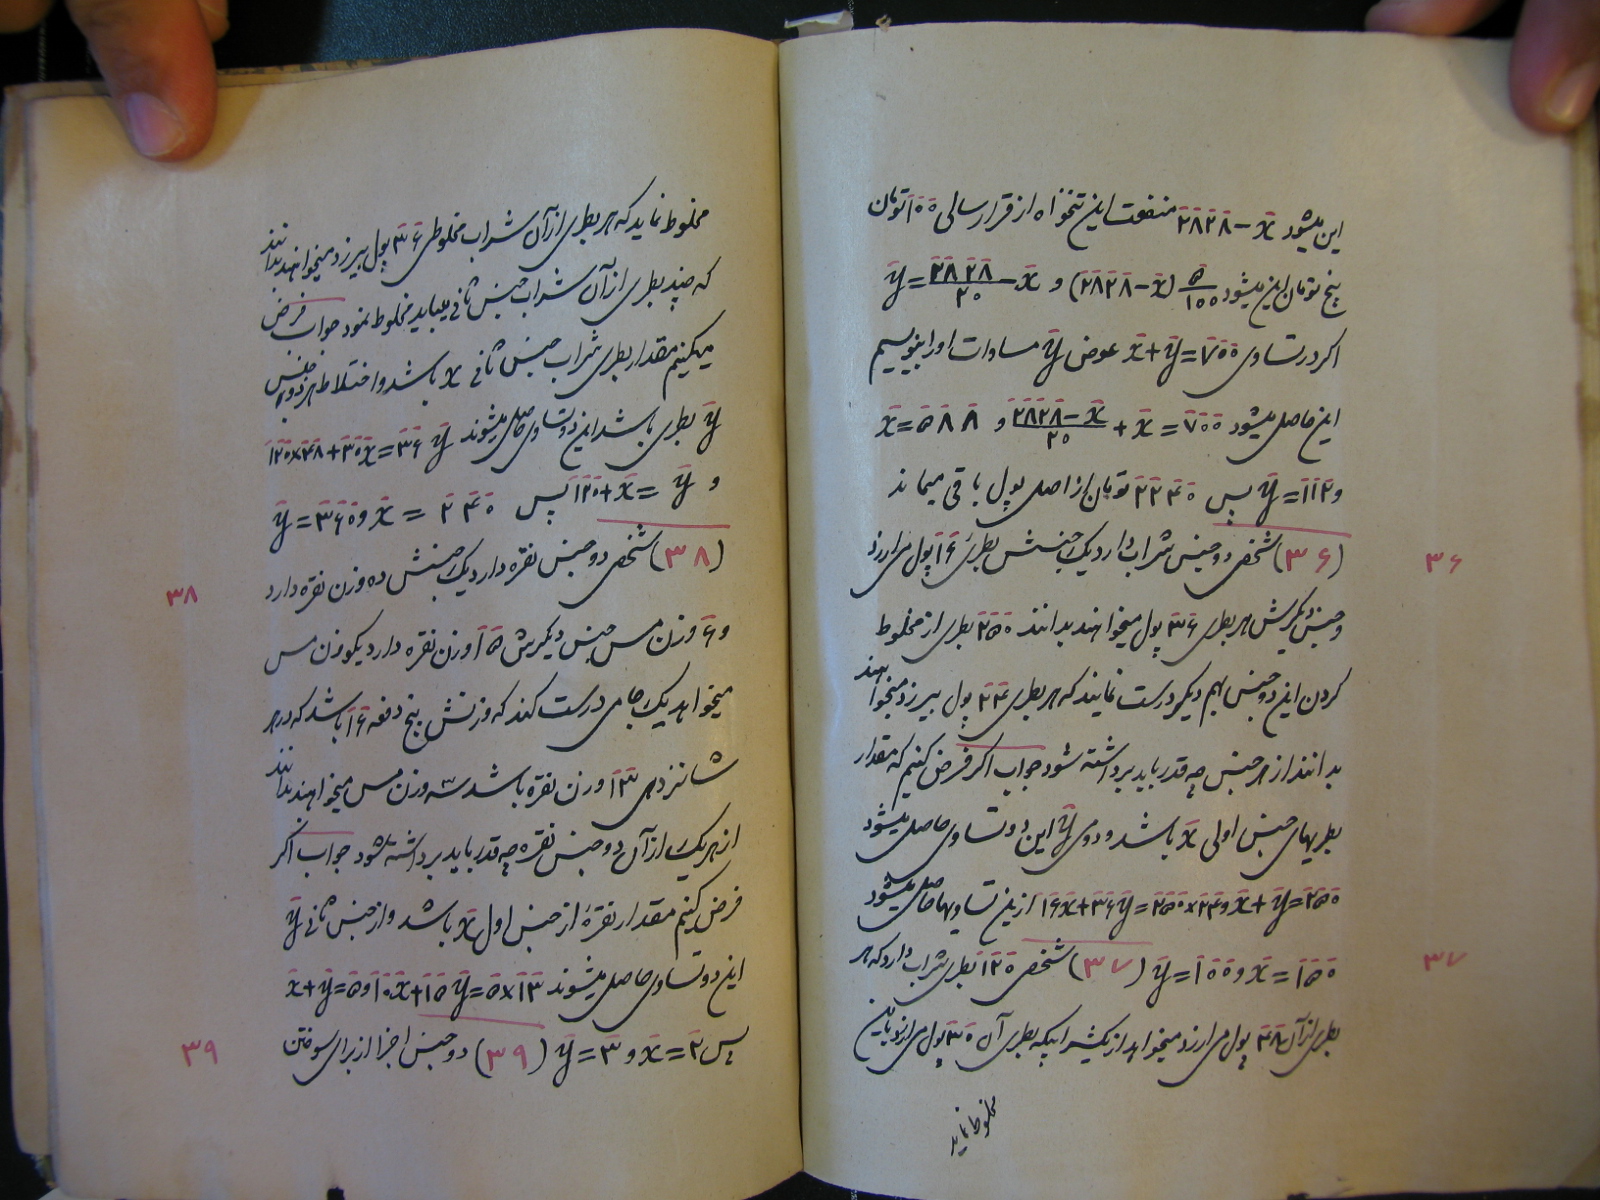 این میشود ۲۸۲۸ − x منفعت این تنخواه از قرار سالی ۱۰۰ تومان
پنج تومان این میشود ۵/۱۰۰ (۲۸۲۸ − x) و y = ۲۸۲۸ − x / ۲۰
اکر در تساوی x + y = ۷۰۰ عوض y مساوات او را بنویسیم
این حاصل میشود ۷۰۰ = x + ۲۸۲۸ − x / ۲۰ و x = ۵۸۸
و y = ۱۱۲ پس ۲۲۴۰ تومان از اصل پول باقی میماند
(۳۶) شخصی دو جنس شراب دارد یک جنسش بطری ۱۶ پول می ارزد
۳۶
و جنس دیکرش هر بطری ۳۶ پول میخواهند بدانند ۲۵۰ بطری از مخلوط
کردن این دو جنس بهم دیکر درست نمایند که هر بطری ۲۴ پول بیرزد میخواهند
بدانند از هر جنس چه قدر باید برداشته شود جواب اکر فرض کنیم که مقدار
بطریهای جنس اولی x باشد و دومی y این دو تساوی حاصل میشود
۱۶x + ۳۶y = ۲۵۰ × ۲۴ و x + y = ۲۵۰ از این تساویها حاصل میشود
x = ۱۵۰ و y = ۱۰۰ (۳۷) شخصی ۱۲۰ بطری شراب دارد که هر
۳۷
بطری از آن ۴۸ پول می ارزد میخواهد از یک شرابیکه بطری آن ۳۰ پول می ارزد با این
مخلوط نماید
مخلوط نماید که هر بطری از آن شراب مخلوطی ۳۶ پول بیرزد میخواهند بدانند
که چند بطری از آن شراب جنس ثانی میباید مخلوط نمود جواب فرض
میکنیم مقدار بطری شراب جنس ثانی x باشد و اختلاط هر دو جنس
y بطری باشد این دو تساوی حاصل میشوند ۱۲۰×۴۸+۳۰x=۳۶y
و y = x+۱۲۰ پس x = ۲۴۰ و y = ۳۶۰
(۳۸) شخصی دو جنس نقره دارد یک جنسش ده وزن نقره دارد
۳۸
و ۶ وزن مس جنس دیکرش ۱۵ وزن نقره دارد یکوزن مس
میخواهد یک جامی درست کند که وزنش پنج دفعه ۱۶ باشد که در هر
شانزدهی ۱۳ وزن نقره باشد سه وزن مس میخواهند بدانند
از هر یک از آن دو جنس نقره چه قدر باید برداشته شود جواب اکر
فرض کنیم مقدار نقرهٔ از جنس اول x باشد و از جنس ثانی y
این دو تساوی حاصل میشوند ۱۰x+۱۵y=۵×۱۳ و x+y=۵
پس x = ۲ و y = ۳ (۳۹) دو جنس اجزا از برای سوختن
۳۹